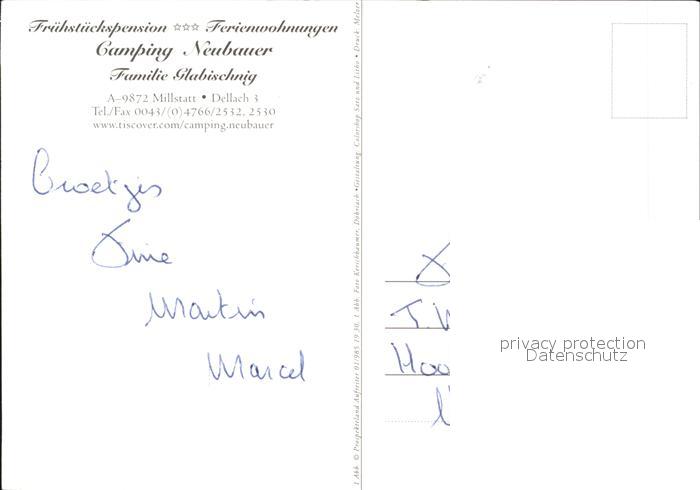 Frühstückspension ☆☆☆ Ferienwohnungen
Camping Neubauer
Familie Glabischnig
A–9872 Millstatt • Dellach 3
Tel./Fax 0043/(0)4766/2532, 2530
www.tiscover.com/camping.neubauer
Groetjes
Martin
Marcel
1 Abb. © Prospekteland Aufreiter 01/985 19 30, 1 Abb. Foto Kerschhaumer, Döbriach • Gestaltung: Colorshop Satz und Litho • Druck: Melzer
T.
Hoo
privacy protection
Datenschutz